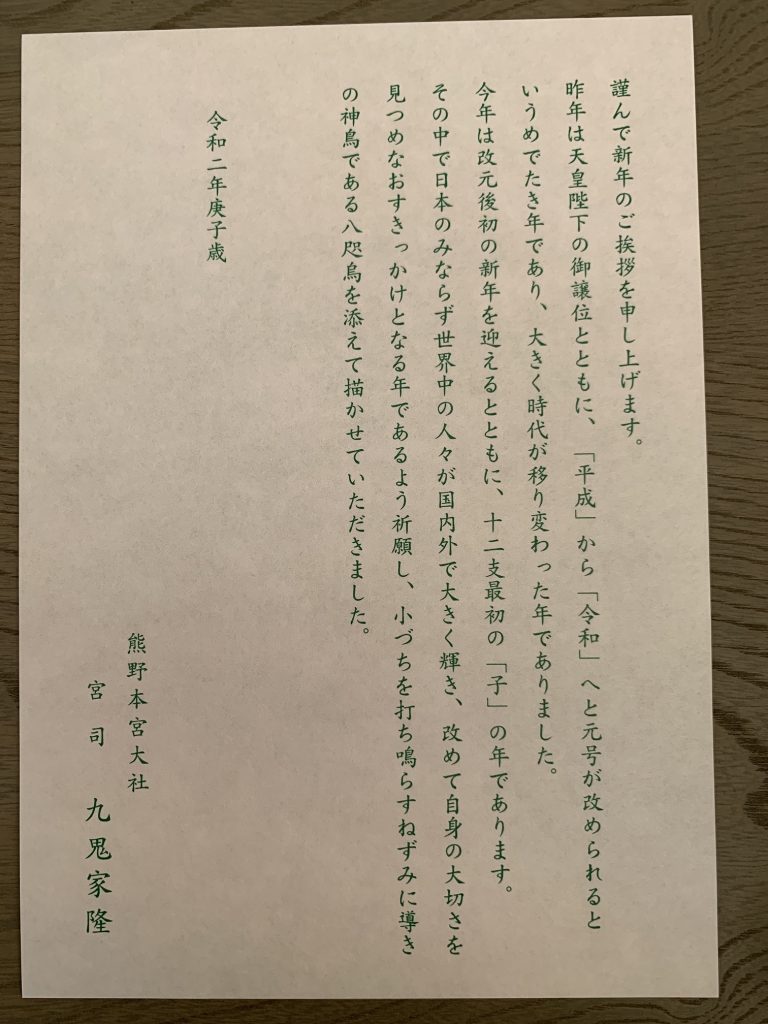 謹んで新年のご挨拶を申し上げます。
昨年は天皇陛下の御譲位とともに、「平成」から「令和」へと元号が改められると
いうめでたき年であり、大きく時代が移り変わった年でありました。
今年は改元後初の新年を迎えるとともに、十二支最初の「子」の年であります。
その中で日本のみならず世界中の人々が国内外で大きく輝き、改めて自身の大切さを
見つめなおすきっかけとなる年であるよう祈願し、小づちを打ち鳴らすねずみに導き
の神鳥である八咫烏を添えて描かせていただきました。
令和二年庚子歳
熊野本宮大社
宮司 九鬼家隆